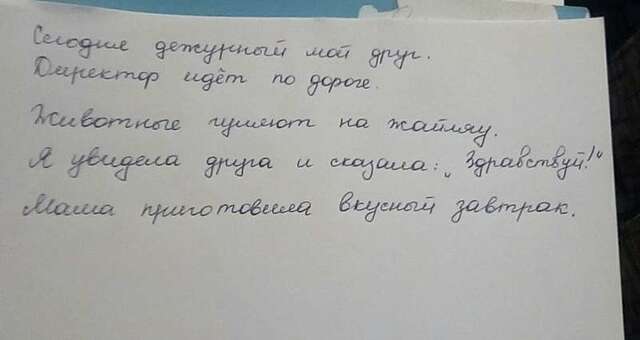 Сегодня дежурный мой друг.
Директор идёт по дороге.
Животные гуляют на жайляу.
Я увидела друга и сказала: „Здравствуй!“
Мама приготовила вкусный завтрак.